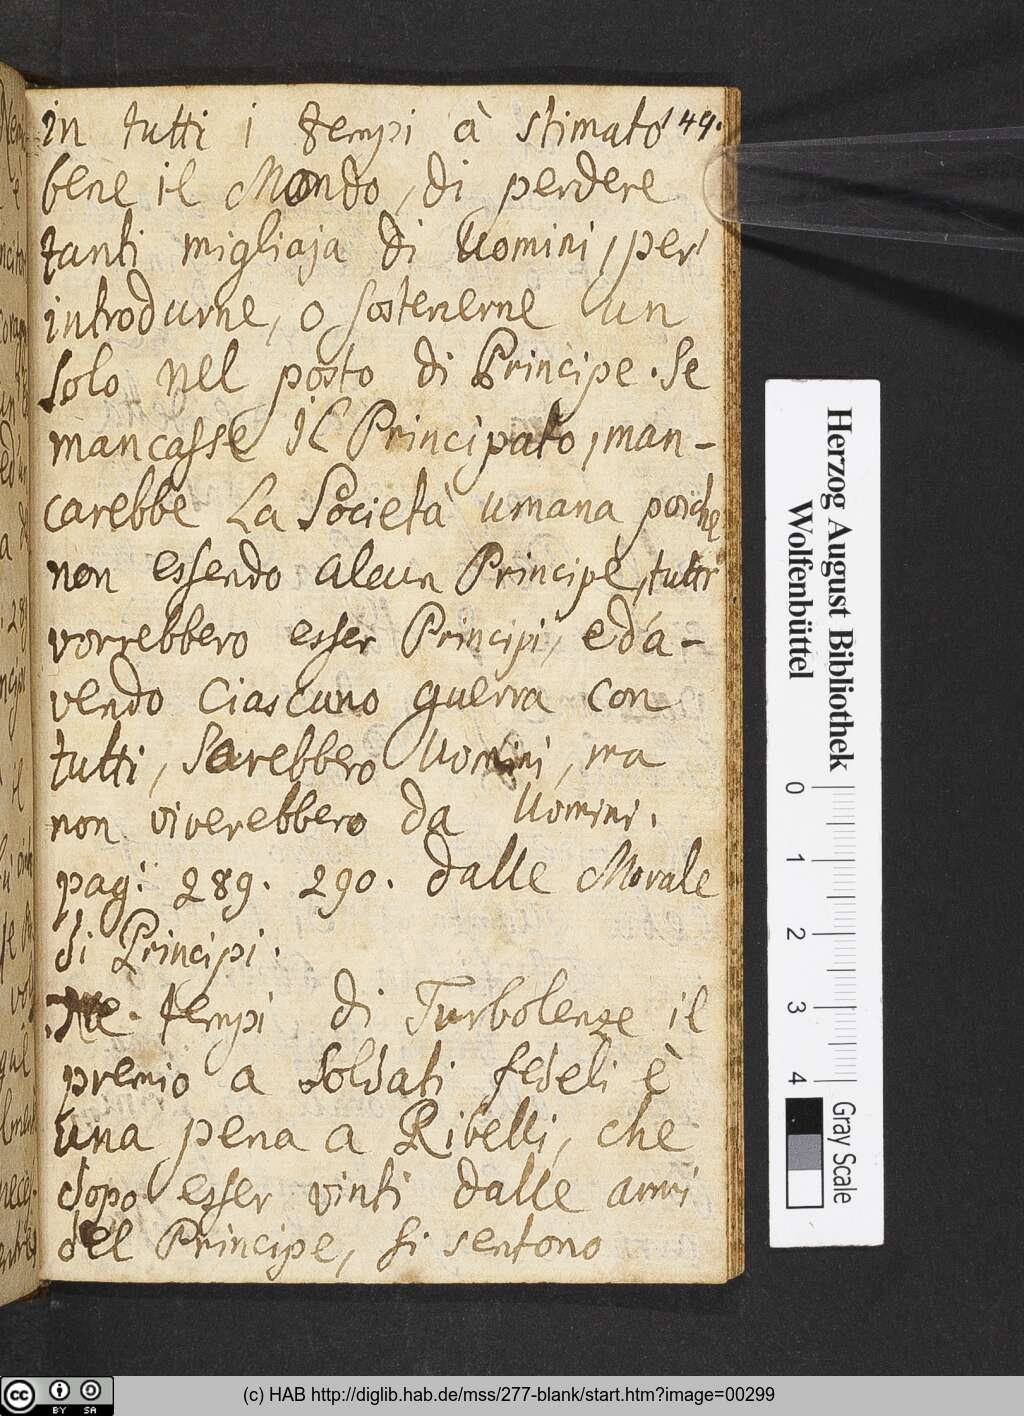 in tutti i tempi à stimato 149.
bene il Mondo, di perdere
tanti migliaja di Uomini, per
introdurne, o sostenerne un
solo nel posto di Principe. Se
mancasse il Principato, man-
carebbe La Società umana, poiche
non essendo alcun Principe, tutti
vorrebbero esser Principi, ed'a-
vendo ciascuno guerra con
tutti, Sarebbero Uomini, ma
non viverebbero da Uomini.
pag: 289. 290. dalle Morale
di Principi.
Ne tempi di Turbolenze il
premio a soldati fedeli è
una pena a Ribelli, che
dopo esser vinti dalle armi
del Principe, si sentono
Herzog August Bibliothek
Wolfenbüttel
0 1 2 3 4
Gray Scale
BY SA
(c) HAB http://diglib.hab.de/mss/277-blank/start.htm?image=00299